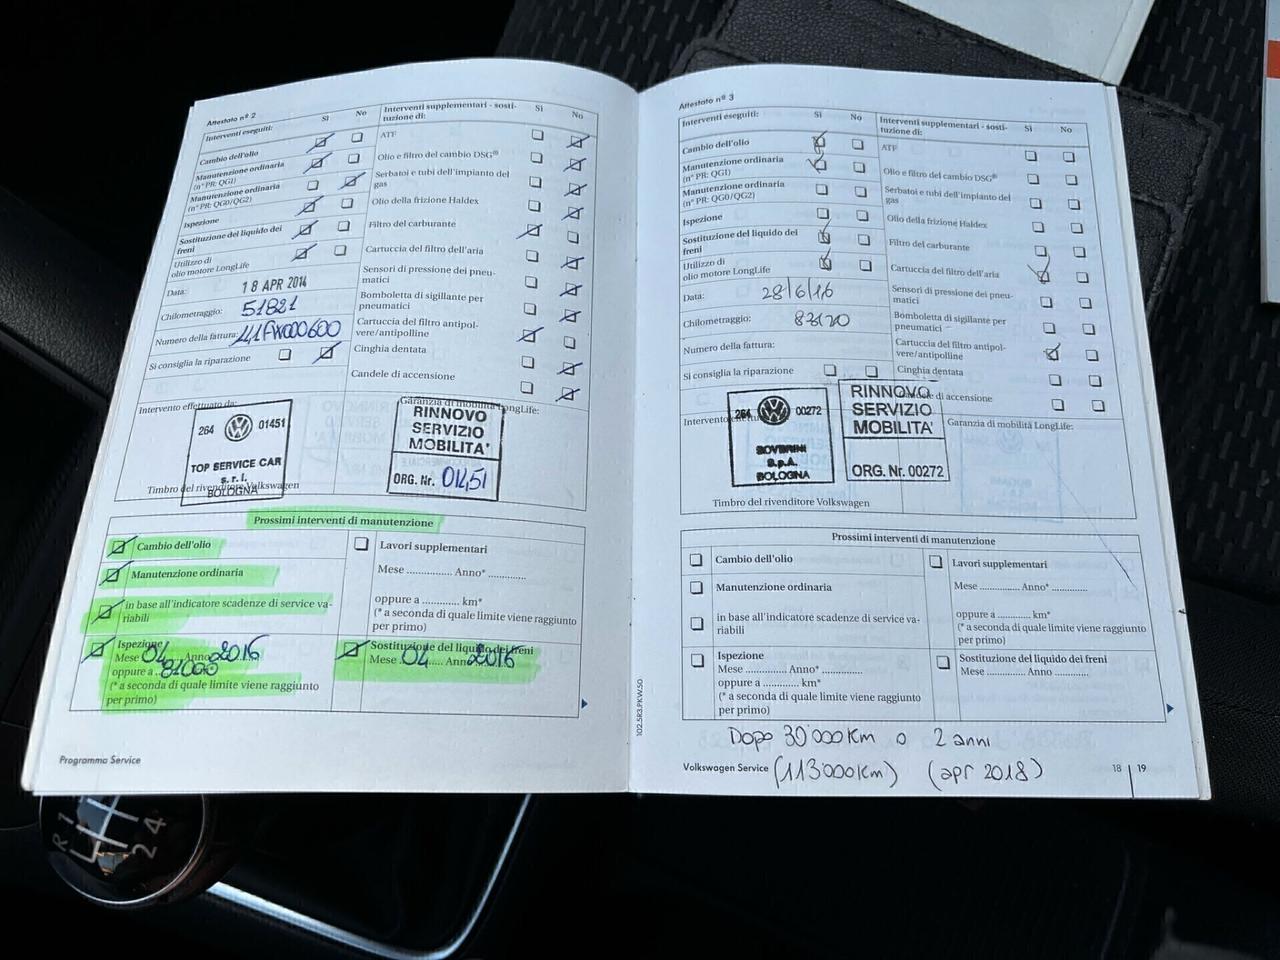 Attestato nº 2
Interventi eseguiti: Sì No
Cambio dell'olio
Manutenzione ordinaria
(nº PR: QG1)
Manutenzione ordinaria
(nº PR: QG0/QG2)
Ispezione
Sostituzione del liquido dei
freni
Utilizzo di
olio motore LongLife
Data: 18 APR 2014
Chilometraggio: 51821
Numero della fattura:
Si consiglia la riparazione
Interventi supplementari - sosti-
tuzione di: Sì No
ATF
Olio e filtro del cambio DSG®
Serbatoi e tubi dell'impianto del
gas
Olio della frizione Haldex
Filtro del carburante
Cartuccia del filtro dell'aria
Sensori di pressione dei pneu-
matici
Bomboletta di sigillante per
pneumatici
Cartuccia del filtro antipol-
vere/antipolline
Cinghia dentata
Candele di accensione
Intervento effettuato da:
264 01451
TOP SERVICE CAR
s.r.l.
BOLOGNA
Timbro del rivenditore Volkswagen
Garanzia di mobilità LongLife:
RINNOVO
SERVIZIO
MOBILITA'
ORG. Nr. 01451
Prossimi interventi di manutenzione
Cambio dell'olio
Manutenzione ordinaria
in base all'indicatore scadenze di service va-
riabili
Ispezione
Mese 04 Anno 2016
oppure a 81000
(* a seconda di quale limite viene raggiunto
per primo)
Lavori supplementari
Mese ............... Anno* .............
oppure a ............ km*
(* a seconda di quale limite viene raggiunto
per primo)
Sostituzione del liquido dei freni
Mese 04 Anno 2016
Programma Service
102.5R3.PKW.50
Attestato nº 3
Interventi eseguiti: Sì No
Cambio dell'olio
Manutenzione ordinaria
(nº PR: QG1)
Manutenzione ordinaria
(nº PR: QG0/QG2)
Ispezione
Sostituzione del liquido dei
freni
Utilizzo di
olio motore LongLife
Data: 28/6/16
Chilometraggio:
Numero della fattura:
Si consiglia la riparazione
Interventi supplementari - sosti-
tuzione di: Sì No
ATF
Olio e filtro del cambio DSG®
Serbatoi e tubi dell'impianto del
gas
Olio della frizione Haldex
Filtro del carburante
Cartuccia del filtro dell'aria
Sensori di pressione dei pneu-
matici
Bomboletta di sigillante per
pneumatici
Cartuccia del filtro antipol-
vere/antipolline
Cinghia dentata
Candele di accensione
264 00272
S.p.A.
BOLOGNA
Timbro del rivenditore Volkswagen
RINNOVO
SERVIZIO
MOBILITA'
ORG. Nr. 00272
Garanzia di mobilità LongLife:
Prossimi interventi di manutenzione
Cambio dell'olio
Manutenzione ordinaria
in base all'indicatore scadenze di service va-
riabili
Ispezione
Mese ............... Anno* ...............
oppure a ............... km*
(* a seconda di quale limite viene raggiunto
per primo)
Lavori supplementari
Mese ............... Anno* ...............
oppure a ............ km*
(* a seconda di quale limite viene raggiunto
per primo)
Sostituzione del liquido dei freni
Mese ............... Anno ...............
Dopo 30'000 Km o 2 anni
(113'000 Km) (apr 2018)
Volkswagen Service 18 | 19
R 1
2 4